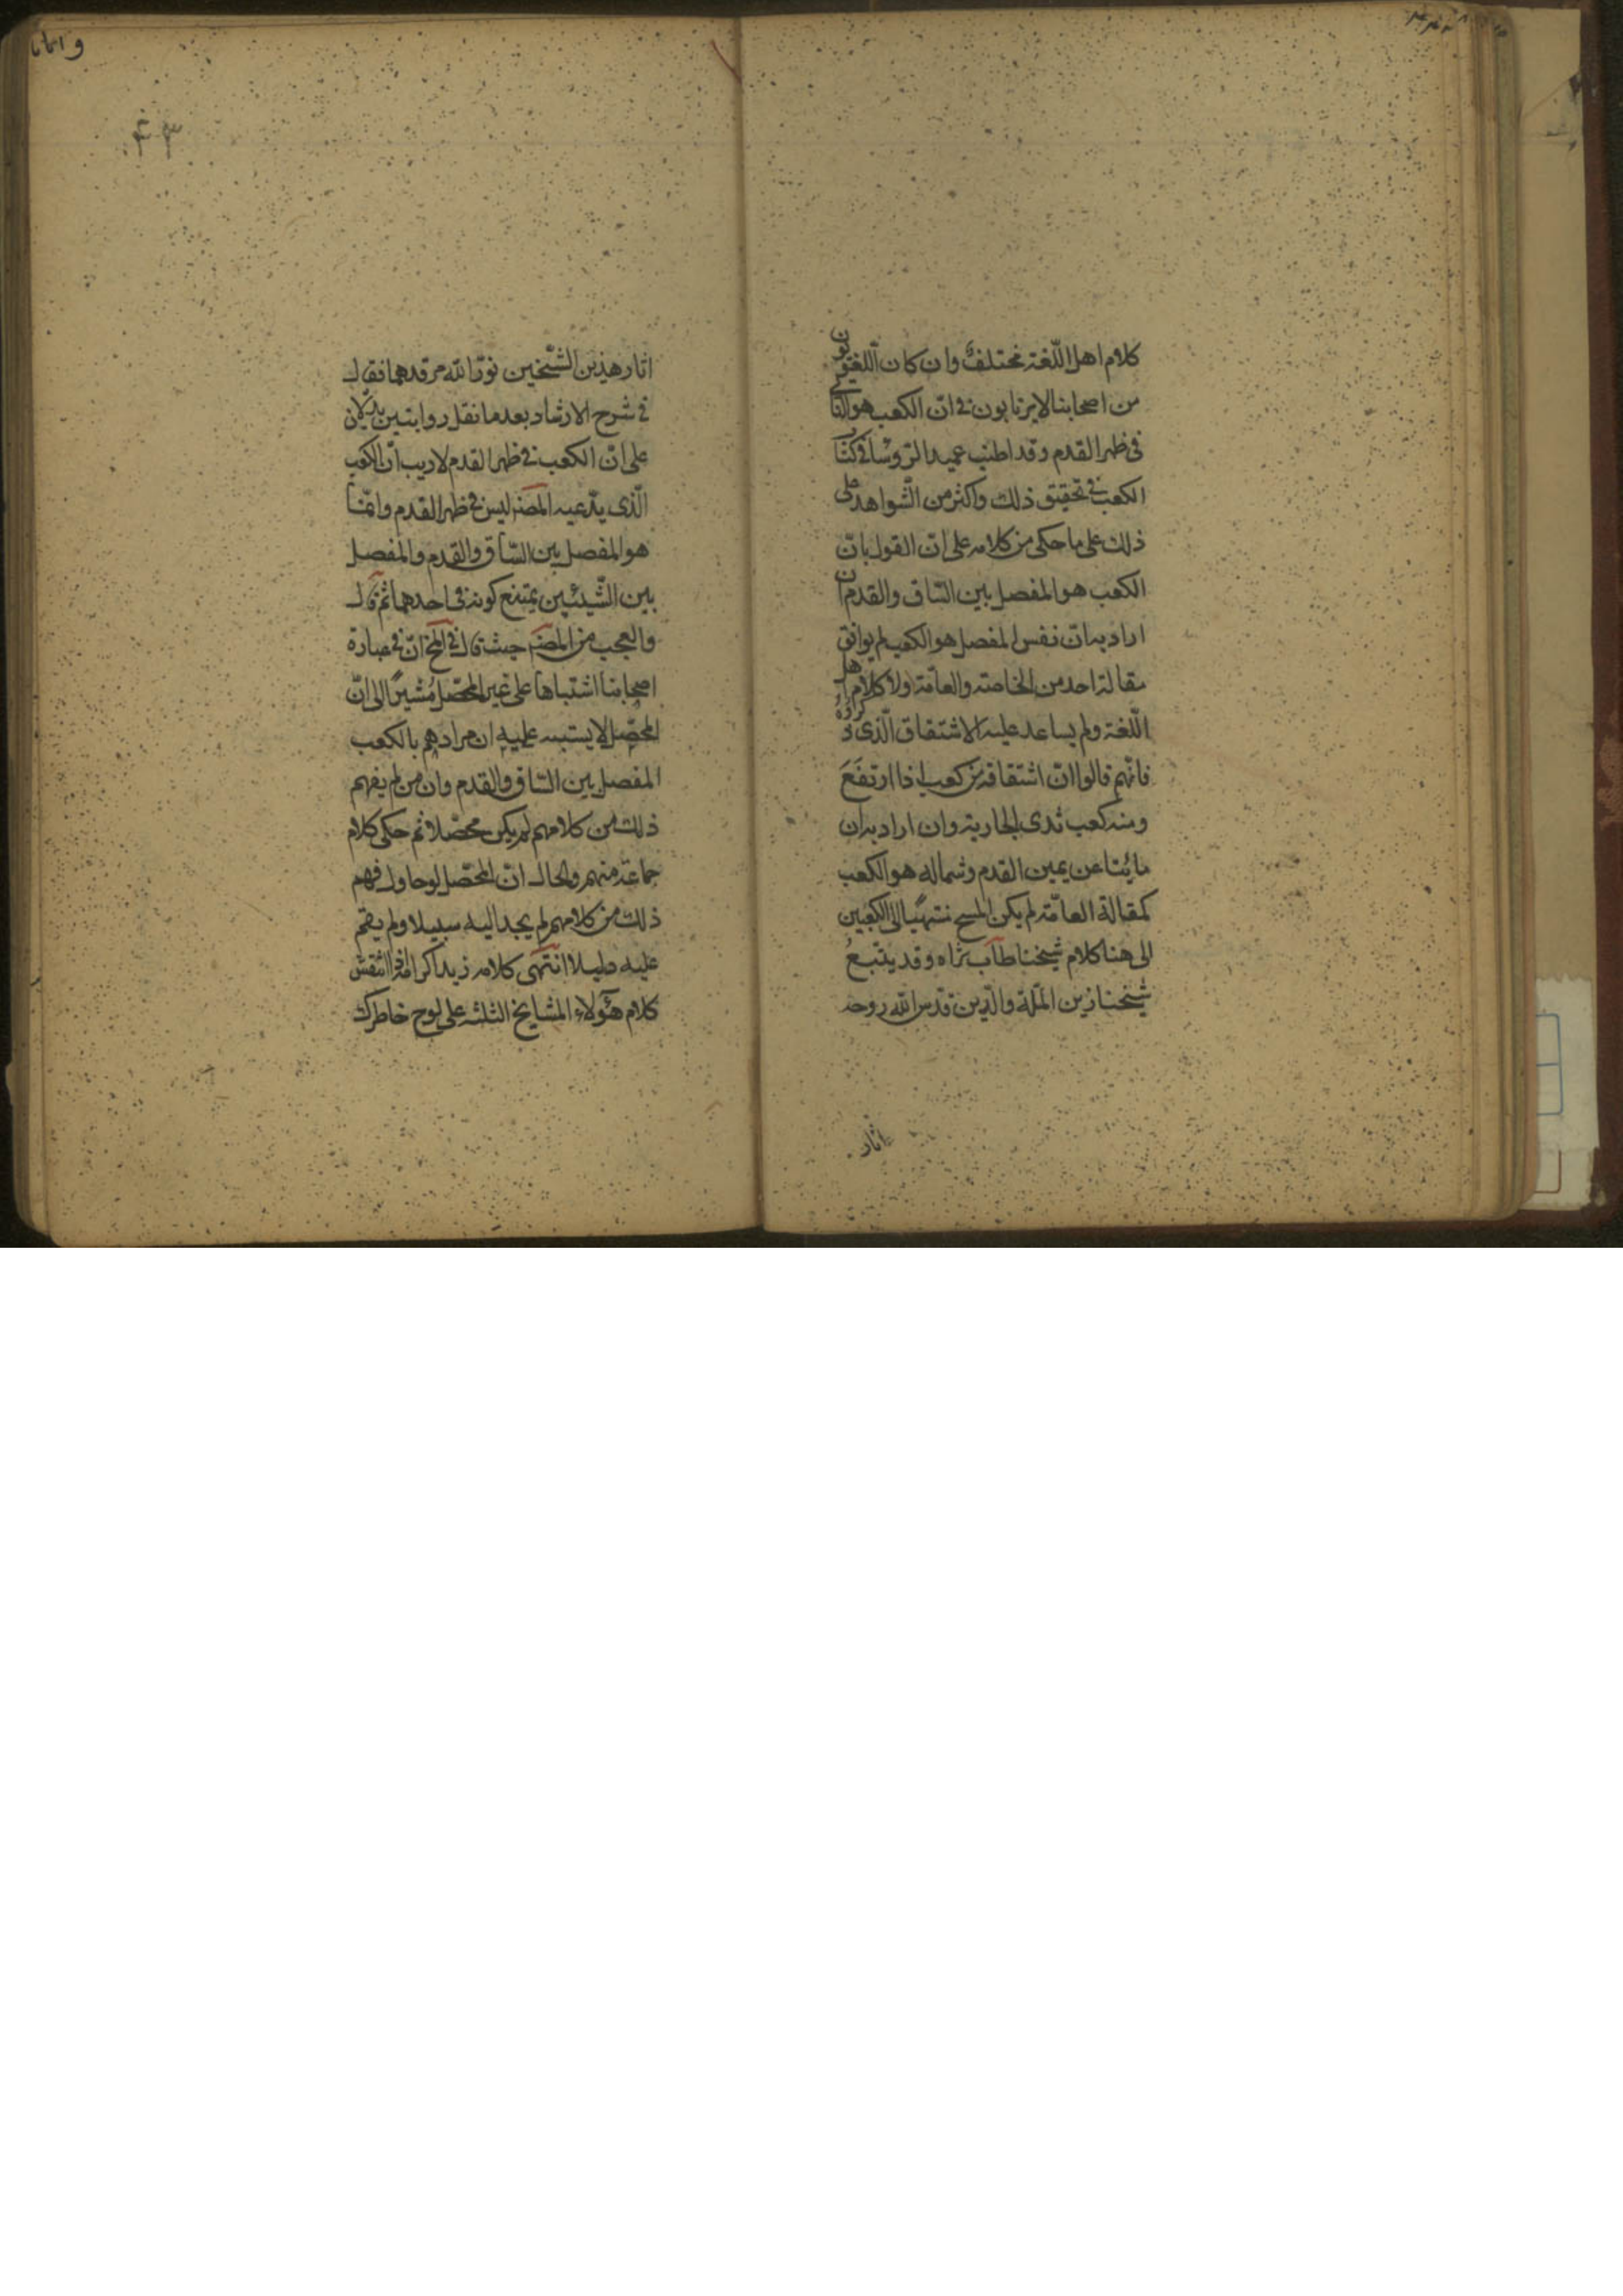 كلام اهل اللّغة مختلفٌ وان كان اللّغويّون
من اصحابنا لا يرتابون فى انّ الكعب هو الناتى
فى ظهر القدم وقد اطنب عميد الرّوسا فى كتاب
الكعب فى تحقيق ذلك واكثر من الشّواهد على
ذلك على ما حكى من كلامه على انّ القول بانّ
الكعب هو المفصل بين السّاق والقدم ان
اراد به انّ نفس المفصل هو الكعب لم يوافق
مقالة احد من الخاصّة والعامّة ولا كلام اهل
اللّغة ولم يساعد عليه الاشتقاق الّذى ذكروه
فانّهم قالوا انّ اشتقاقه من كعب اذا ارتفَعَ
ومنه كعب ثدى الجارية وان اراد به ان
ما نتا عن يمين القدم وشماله هو الكعب
كمقالة العامّة لم يكن المسح منتهيًا الى الكعبين
الى هنا كلام شيخنا طاب ثراه وقد يتّبعُ
شيخنا زين الملّة والدّين قدّس اللّه روحه
اثار
۴۳
اثار هذين الشّيخين نوّر اللّه مرقدهما فقال
فى شرح الارشاد بعد ما نقل روايتين يدلّان
على انّ الكعب فى ظهر القدم لا ريب انّ الكعب
الّذى يدّعيه المص ليس فى ظهر القدم وانّما
هو المفصل بين السّاق والقدم والمفصل
بين الشّيئين يمتنع كونه فى احدهما ثم قال
والعجب من المص حيث قال فى المخ انّ فى عبارة
اصحابنا اشتباها على غير المحصّل مُشيرًا الى انّ
المحصّل لا يشتبه عليه ان مرادهم بالكعب
المفصل بين السّاق والقدم وان من لم يفهم
ذلك من كلامهم لم يكن محصّلا ثم حكى كلام
جماعة منهم والحال انّ المحصّل لو حاول فهم
ذلك من كلامهم لم يجد اليه سبيلا ولم يقم
عليه دليلا انتهى كلامه زيد اكرامه واذا انتقش
كلام هؤلاء المشايخ الثلثه على لوح خاطرك